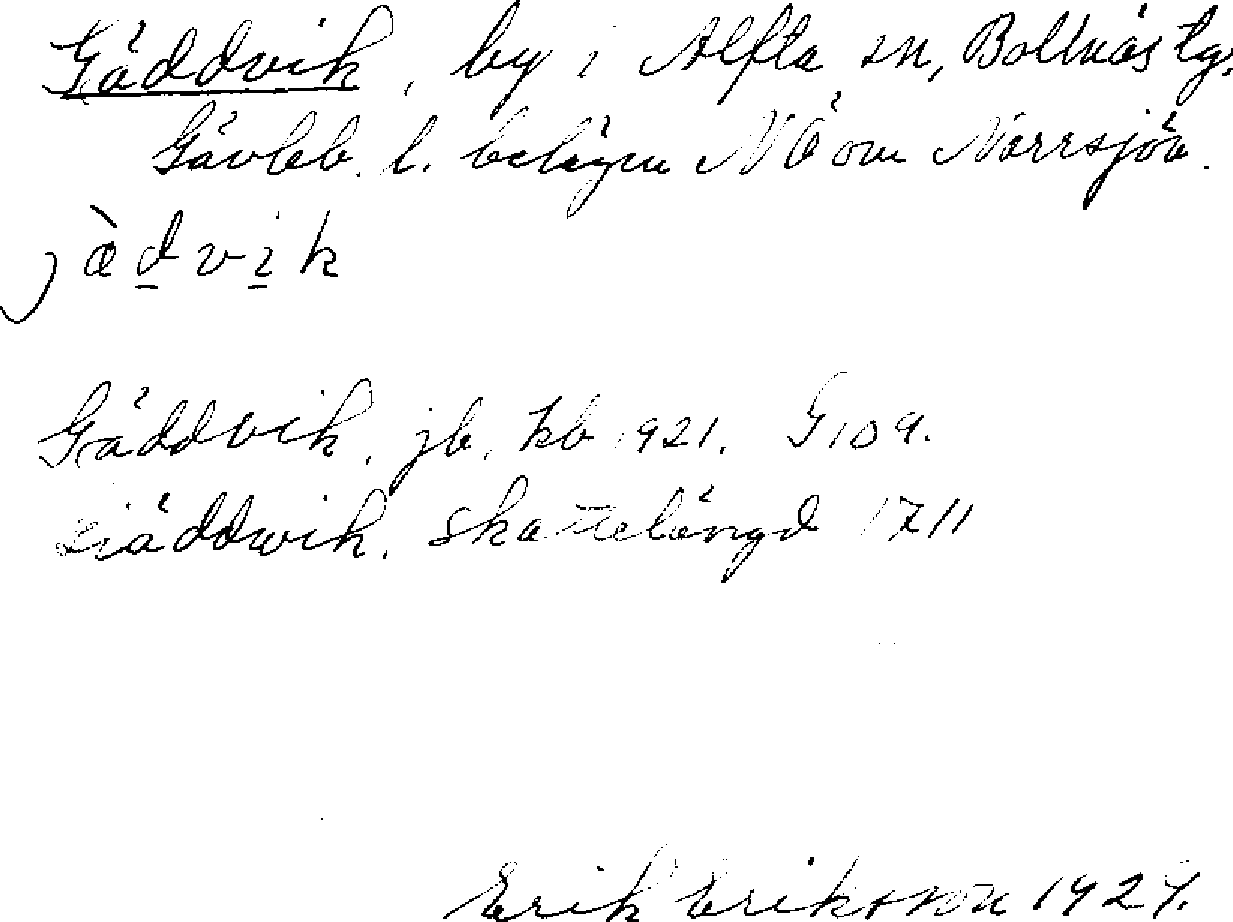 Gäddvik, by i Alfta sn, Bollnäs tg.
Gävleb. l. belägen NÖ om Norrsjön.
jæ̀dvik
Gäddvik, jb, kb 1921. G109.
Giäddwik, skattelängd 1711
Erik Eriksson 1927.